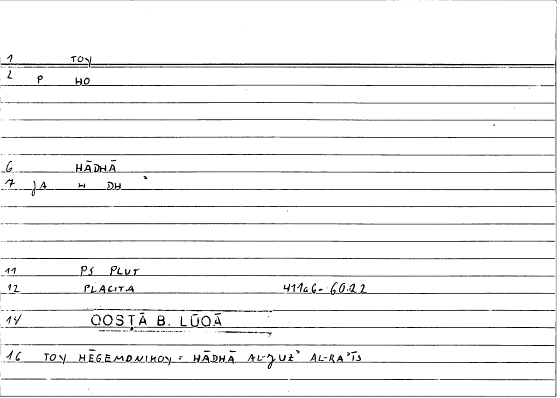 1 TOY
2 P HO
6 HĀDHĀ
7 JA H DH ʾ
11 PS PLUT
12 PLACITA 411a6- 60.22
14 QOSṬĀ B. LŪQĀ
16 TOY HĒGEMONIKOY = HĀDHĀ AL-JUZʾ AL-RAʾĪS